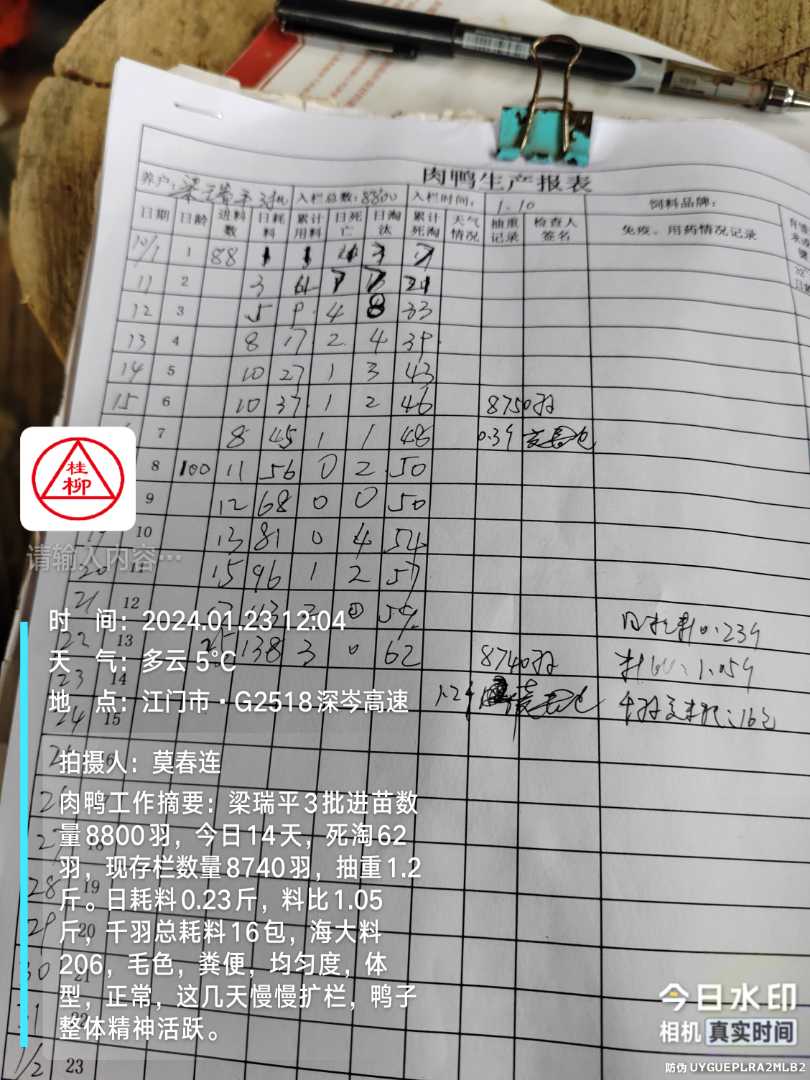 肉鸭生产报表
养户: 入栏总数:8800 入栏时间: 1.10 饲料品牌:
日期 日龄 进料数 日耗料 累计用料 日死亡 日淘汰 累计死淘 天气情况 抽重记录 检查人签名 免疫、用药情况记录
10/1 1 88 1 1
11 2 3 4 7 7
12 3 5 9 4 8 33
13 4 8 17 2 4 39
14 5 10 27 1 3 43
15 6 10 37 1 2 46 8750羽
7 8 45 1 1 48 0.39
8 100 11 56 0 2 50
9 12 68 0 0 50
10 13 81 0 4 54
20 11 15 96 1 2 57
21 12 113 3 0 59 日耗料0.239
22 13 25 138 3 0 62 8740羽 料比:1.059
23 14 1.29 千羽总耗:16包
24 15
桂柳
请输入内容…
时 间: 2024.01.23 12:04
天 气: 多云 5℃
地 点: 江门市·G2518深岑高速
拍摄人: 莫春连
肉鸭工作摘要: 梁瑞平3批进苗数
量8800羽，今日14天，死淘62
羽，现存栏数量8740羽，抽重1.2
斤。日耗料0.23斤，料比1.05
斤，千羽总耗料16包，海大料
206，毛色，粪便，均匀度，体
型，正常，这几天慢慢扩栏，鸭子
整体精神活跃。
28 19
29 20
30 21
31 22
1/2 23
今日水印
相机 真实时间
防伪 UYGUEPLRA2MLB2